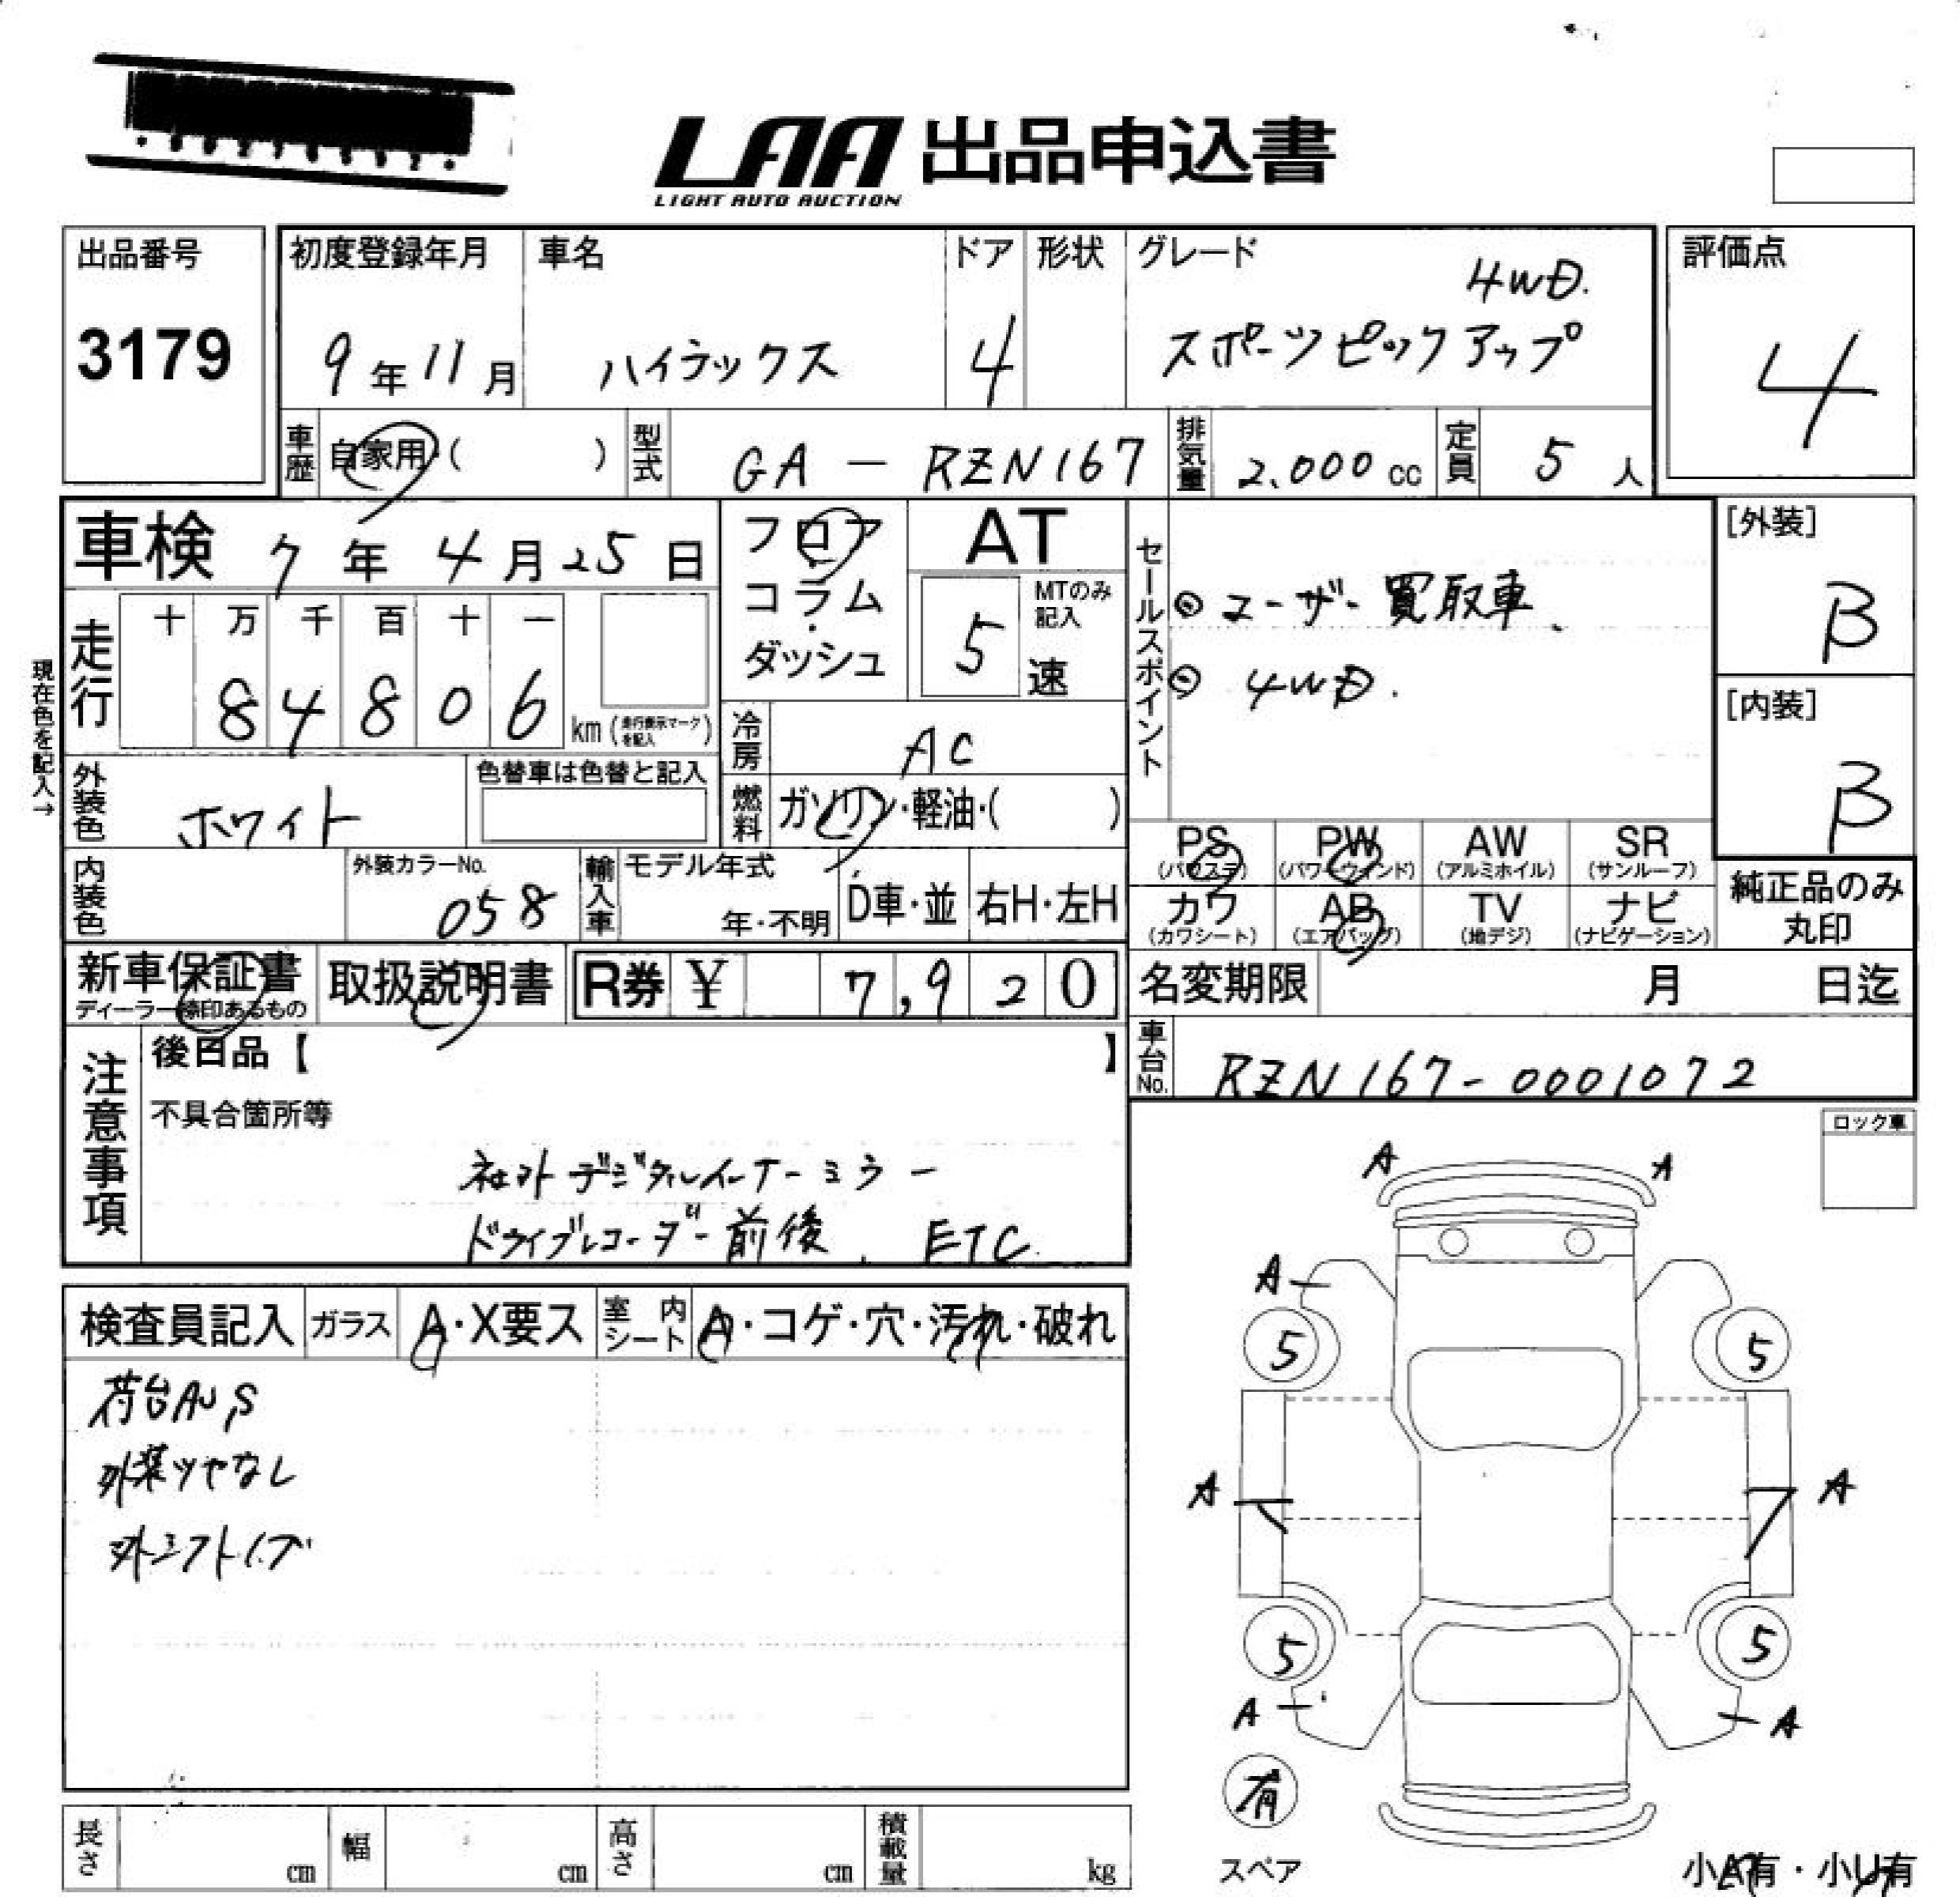 LAA 出品申込書
LIGHT AUTO AUCTION
出品番号
3179
初度登録年月
9年11月
車名
ハイラックス
ドア
4
形状
グレード
4WD.
スポーツピックアップ
評価点
4
車歴
自家用・( )
型式
GA - RZN167
排気量
2.000 cc
定員
5 人
車検 7年4月25日
フロア
コラム
ダッシュ
AT
MTのみ
記入
5 速
セールスポイント
◎ ユーザー買取車.
◎ 4WD.
[外装]
B
[内装]
B
現在色を記入→
走行
十 万 千 百 十 一
8 4 8 0 6
km (走行表示マークを記入)
冷房
AC
外装色
ホワイト
色替車は色替と記入
燃料
ガソリン・軽油・( )
PS
(パワステ)
PW
(パワーウィンド)
AW
(アルミホイル)
SR
(サンルーフ)
カワ
(カワシート)
AB
(エアバッグ)
TV
(地デジ)
ナビ
(ナビゲーション)
純正品のみ
丸印
内装色
外装カラーNo.
058
輸入車
モデル年式
年・不明
D車・並
右H・左H
新車保証書
ディーラー捺印あるもの
取扱説明書
R券 ¥ 7,920
名変期限 月 日迄
車台No.
RZN167-0001072
注意事項
後日品【 】
不具合箇所等
デジタルインナーミラー
ドライブレコーダー前後、ETC
ロック車
検査員記入
ガラス
A・X要ス
室内シート
A・コゲ・穴・汚れ・破れ
荷台AU,S
外装ツヤなし
A A
A
5 5
A A
5 5
A A
有
スペア
小A有・小U有
長さ cm
幅 cm
高さ cm
積載量 kg